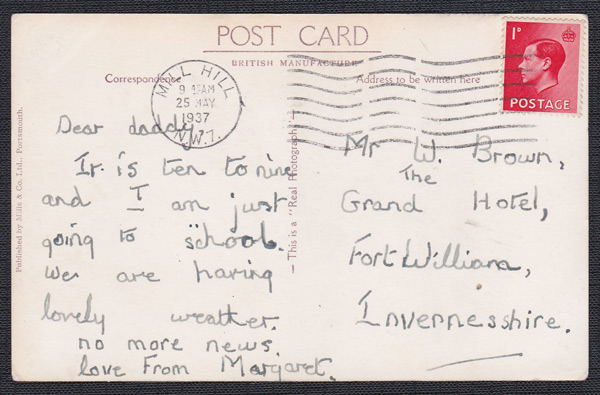 POST CARD
BRITISH MANUFACTURE
Correspondence
Address to be written here
1D
POSTAGE
MILL HILL
25 MAY
1937
N.W.7.
Dear daddy,
It is ten to nine
and I am just
going to school.
we are having
lovely weather.
no more news.
love From Margaret.
Mr W. Brown,
The
Grand Hotel,
Fort William,
Invernesshire.
This is a "Real Photograph"
Published by Mills & Co. Ltd., Portsmouth.